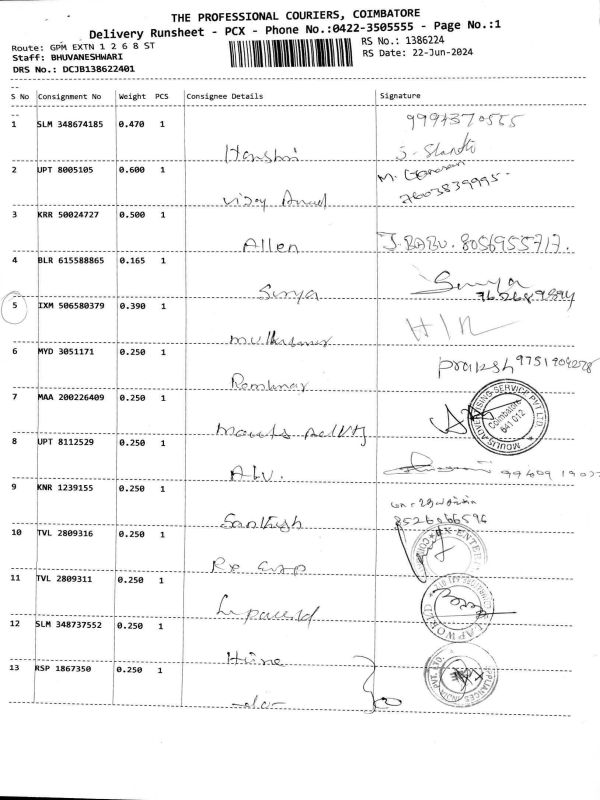 THE PROFESSIONAL COURIERS, COIMBATORE
Delivery Runsheet - PCX - Phone No.:0422-3505555 - Page No.:1
Route: GPM EXTN 1 2 6 8 ST
RS No.: 1386224
Staff: BHUVANESHWARI
RS Date: 22-Jun-2024
DRS No.: DCJB138622401
S No Consignment No Weight PCS Consignee Details Signature
1 SLM 348674185 0.470 1
2 UPT 8005105 0.600 1
M.
7603839995.
3 KRR 50024727 0.500 1
Allen J. BABU. 8056955717.
4 BLR 615588865 0.165 1
Surya Surya
5 IXM 506580379 0.390 1
H/R
6 MYD 3051171 0.250 1
prakash 9751904278
7 MAA 200226409 0.250 1
MOULIS ADVERTISING SERVICE PVT LTD
Coimbatore
641 012
8 UPT 8112529 0.250 1
9 KNR 1239155 0.250 1
Santhosh
8526066596
10 TVL 2809316 0.250 1
11 TVL 2809311 0.250 1
LAPWORLD
12 SLM 348737552 0.250 1
13 RSP 1867350 0.250 1
-do-